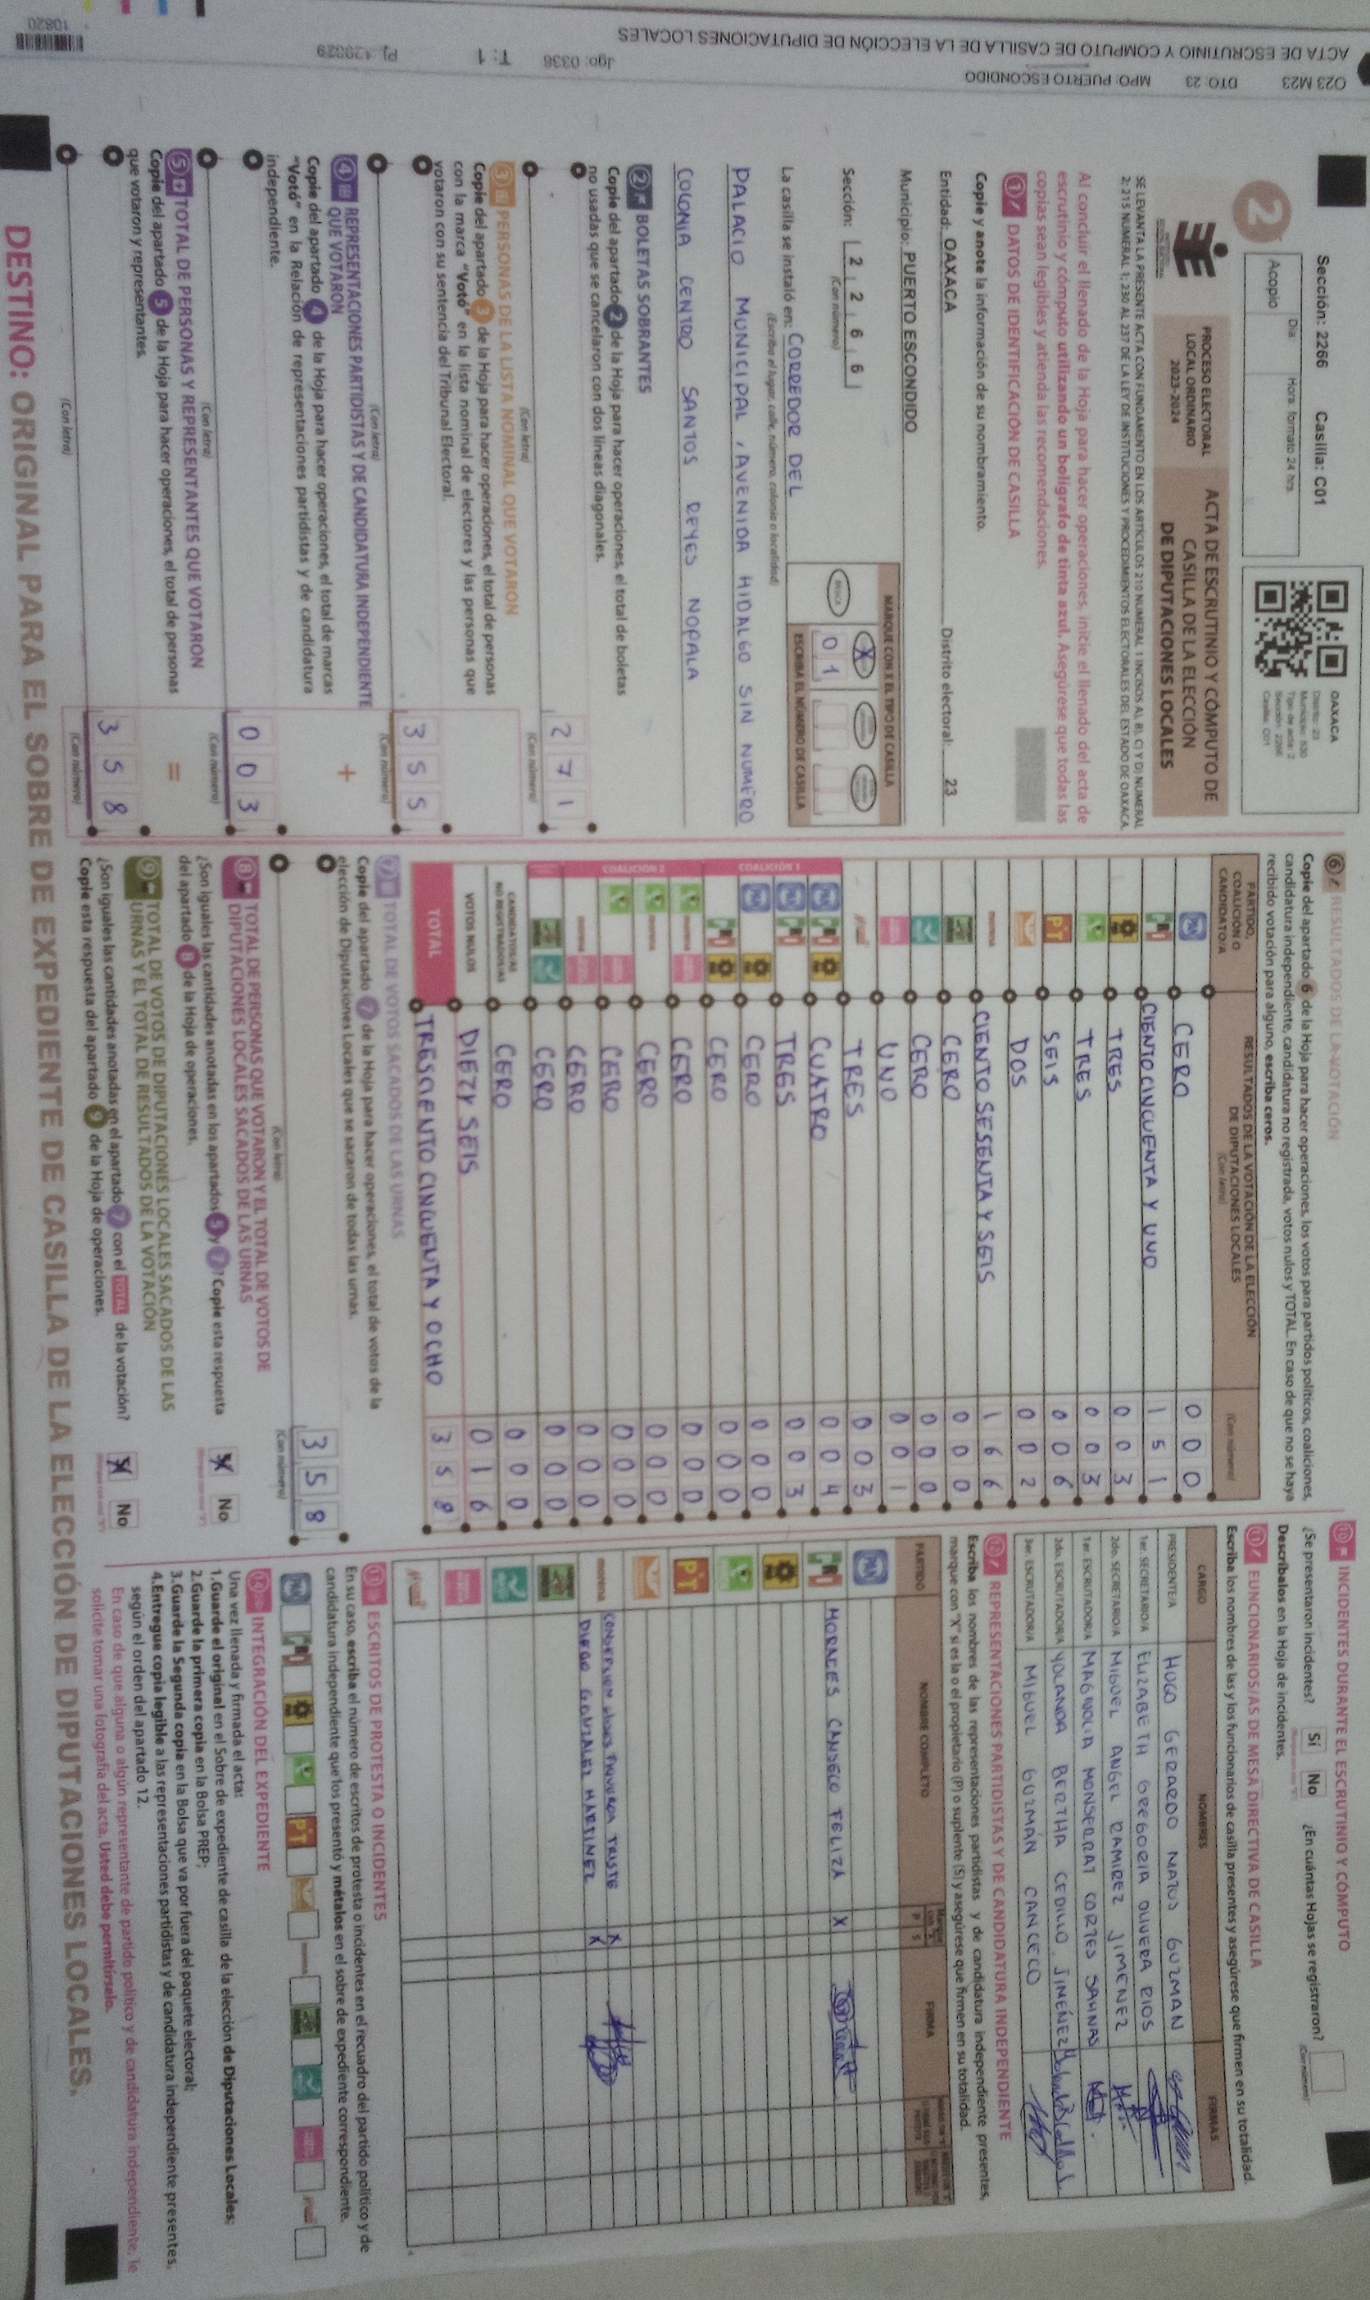 ACTA DE ESCRUTINIO Y CÓMPUTO DE CASILLA DE LA ELECCIÓN DE DIPUTACIONES LOCALES
O23 M23 DTO: 23 MPO: PUERTO ESCONDIDO
Jgo: 0336 T: 1
10820
Sección: 2266 Casilla: C01
2
Día Hora formato 24 hrs.
Acopio
OAXACA
Distrito: 23
Tipo de acta: 2
Sección: 2266
Casilla: C01
PROCESO ELECTORAL
LOCAL ORDINARIO
2023-2024
ACTA DE ESCRUTINIO Y CÓMPUTO DE
CASILLA DE LA ELECCIÓN
DE DIPUTACIONES LOCALES
SE LEVANTA LA PRESENTE ACTA CON FUNDAMENTO EN LOS ARTÍCULOS 210 NUMERAL 1 INCISOS A), B), C) Y D) NUMERAL
2; 215 NUMERAL 1; 230 AL 237 DE LA LEY DE INSTITUCIONES Y PROCEDIMIENTOS ELECTORALES DEL ESTADO DE OAXACA.
Al concluir el llenado de la Hoja para hacer operaciones, inicie el llenado del acta de
escrutinio y cómputo utilizando un bolígrafo de tinta azul. Asegúrese que todas las
copias sean legibles y atienda las recomendaciones.
1 DATOS DE IDENTIFICACIÓN DE CASILLA
Copie y anote la información de su nombramiento.
Entidad: OAXACA Distrito electoral: 23
Municipio: PUERTO ESCONDIDO
Sección: 2 2 6 6
(Con número)
MARQUE CON X EL TIPO DE CASILLA
X
0 1
ESCRIBA EL NÚMERO DE CASILLA
La casilla se instaló en: CORREDOR DEL
(Escriba el lugar, calle, número, colonia o localidad)
PALACIO MUNICIPAL, AVENIDA HIDALGO SIN NUMERO
COLONIA CENTRO SANTOS REYES NOPALA
2 BOLETAS SOBRANTES
Copie del apartado 2 de la Hoja para hacer operaciones, el total de boletas
no usadas que se cancelaron con dos líneas diagonales.
2 7 1
(Con letra) (Con número)
3 PERSONAS DE LA LISTA NOMINAL QUE VOTARON
Copie del apartado 3 de la Hoja para hacer operaciones, el total de personas
con la marca "Votó" en la lista nominal de electores y las personas que
votaron con su sentencia del Tribunal Electoral.
3 5 5
(Con letra) (Con número)
4 REPRESENTACIONES PARTIDISTAS Y DE CANDIDATURA INDEPENDIENTE
QUE VOTARON
+
Copie del apartado 4 de la Hoja para hacer operaciones, el total de marcas
"Votó" en la Relación de representaciones partidistas y de candidatura
independiente.
0 0 3
(Con letra) (Con número)
5 TOTAL DE PERSONAS Y REPRESENTANTES QUE VOTARON
=
Copie del apartado 5 de la Hoja para hacer operaciones, el total de personas
que votaron y representantes.
3 5 8
(Con letra) (Con número)
6 RESULTADOS DE LA VOTACIÓN
Copie del apartado 6 de la Hoja para hacer operaciones, los votos para partidos políticos, coaliciones,
candidatura independiente, candidatura no registrada, votos nulos y TOTAL. En caso de que no se haya
recibido votación para alguno, escriba ceros.
PARTIDO,
COALICIÓN O
CANDIDATO/A
RESULTADOS DE LA VOTACIÓN DE LA ELECCIÓN
DE DIPUTACIONES LOCALES
(Con letra) (Con número)
PAN CERO 0 0 0
PRI CIENTO CINCUENTA Y UNO 1 5 1
TRES 0 0 3
TRES 0 0 3
PT SEIS 0 0 6
DOS 0 0 2
morena CIENTO SESENTA Y SEIS 1 6 6
CERO 0 0 0
CERO 0 0 0
UNO 0 0 1
TRES 0 0 3
COALICIÓN 1
CUATRO 0 0 4
TRES 0 0 3
CERO 0 0 0
CERO 0 0 0
COALICIÓN 2
CERO 0 0 0
CERO 0 0 0
CERO 0 0 0
CERO 0 0 0
CERO 0 0 0
CANDIDATOS/AS
NO REGISTRADOS/AS CERO 0 0 0
VOTOS NULOS DIEZ Y SEIS 0 1 6
TOTAL TRESCIENTO CINCUENTA Y OCHO 3 5 8
7 TOTAL DE VOTOS SACADOS DE LAS URNAS
Copie del apartado 7 de la Hoja para hacer operaciones, el total de votos de la
elección de Diputaciones Locales que se sacaron de todas las urnas.
3 5 8
(Con letra) (Con número)
8 TOTAL DE PERSONAS QUE VOTARON Y EL TOTAL DE VOTOS DE
DIPUTACIONES LOCALES SACADOS DE LAS URNAS
¿Son iguales las cantidades anotadas en los apartados 5 y 7? Copie esta respuesta
del apartado 8 de la Hoja de operaciones.
Sí No
9 TOTAL DE VOTOS DE DIPUTACIONES LOCALES SACADOS DE LAS
URNAS Y EL TOTAL DE RESULTADOS DE LA VOTACIÓN
¿Son iguales las cantidades anotadas en el apartado 7 con el TOTAL de la votación?
Copie esta respuesta del apartado 9 de la Hoja de operaciones.
Sí No
10 INCIDENTES DURANTE EL ESCRUTINIO Y CÓMPUTO
¿Se presentaron incidentes? Sí No ¿En cuántas Hojas se registraron?
(Con número)
Descríbalos en la Hoja de incidentes.
11 FUNCIONARIOS/AS DE MESA DIRECTIVA DE CASILLA
Escriba los nombres de las y los funcionarios de casilla presentes y asegúrese que firmen en su totalidad.
CARGO NOMBRES FIRMAS
PRESIDENTE/A HUGO GERARDO MATUS GUZMAN
1er. SECRETARIO/A ELIZABETH GREGORIA OLIVERA RIOS
2do. SECRETARIO/A MIGUEL ANGEL RAMIREZ JIMENEZ
1er. ESCRUTADOR/A MAGNOLIA MONSERRAT CORTES SALINAS
2do. ESCRUTADOR/A YOLANDA BERTHA CEDILLO JIMÉNEZ
3er. ESCRUTADOR/A MIGUEL GUZMÁN CANSECO
12 REPRESENTACIONES PARTIDISTAS Y DE CANDIDATURA INDEPENDIENTE
Escriba los nombres de las representaciones partidistas y de candidatura independiente presentes,
marque con "X" si es la o el propietario (P) o suplente (S) y asegúrese que firmen en su totalidad.
PARTIDO NOMBRE COMPLETO P S FIRMA
PAN
PRI MORALES CANSECO FELIZA X
PT
morena
DIEGO GONZALEZ MARTINEZ X
13 ESCRITOS DE PROTESTA O INCIDENTES
En su caso, escriba el número de escritos de protesta o incidentes en el recuadro del partido político y de
candidatura independiente que los presentó y métalos en el sobre de expediente correspondiente.
14 INTEGRACIÓN DEL EXPEDIENTE
Una vez llenada y firmada el acta:
1.Guarde el original en el Sobre de expediente de casilla de la elección de Diputaciones Locales;
2.Guarde la primera copia en la Bolsa PREP;
3.Guarde la Segunda copia en la Bolsa que va por fuera del paquete electoral;
4.Entregue copia legible a las representaciones partidistas y de candidatura independiente presentes,
según el orden del apartado 12.
En caso de que alguna o algún representante de partido político y de candidatura independiente, le
solicite tomar una fotografía del acta, Usted debe permitírselo.
DESTINO: ORIGINAL PARA EL SOBRE DE EXPEDIENTE DE CASILLA DE LA ELECCIÓN DE DIPUTACIONES LOCALES.